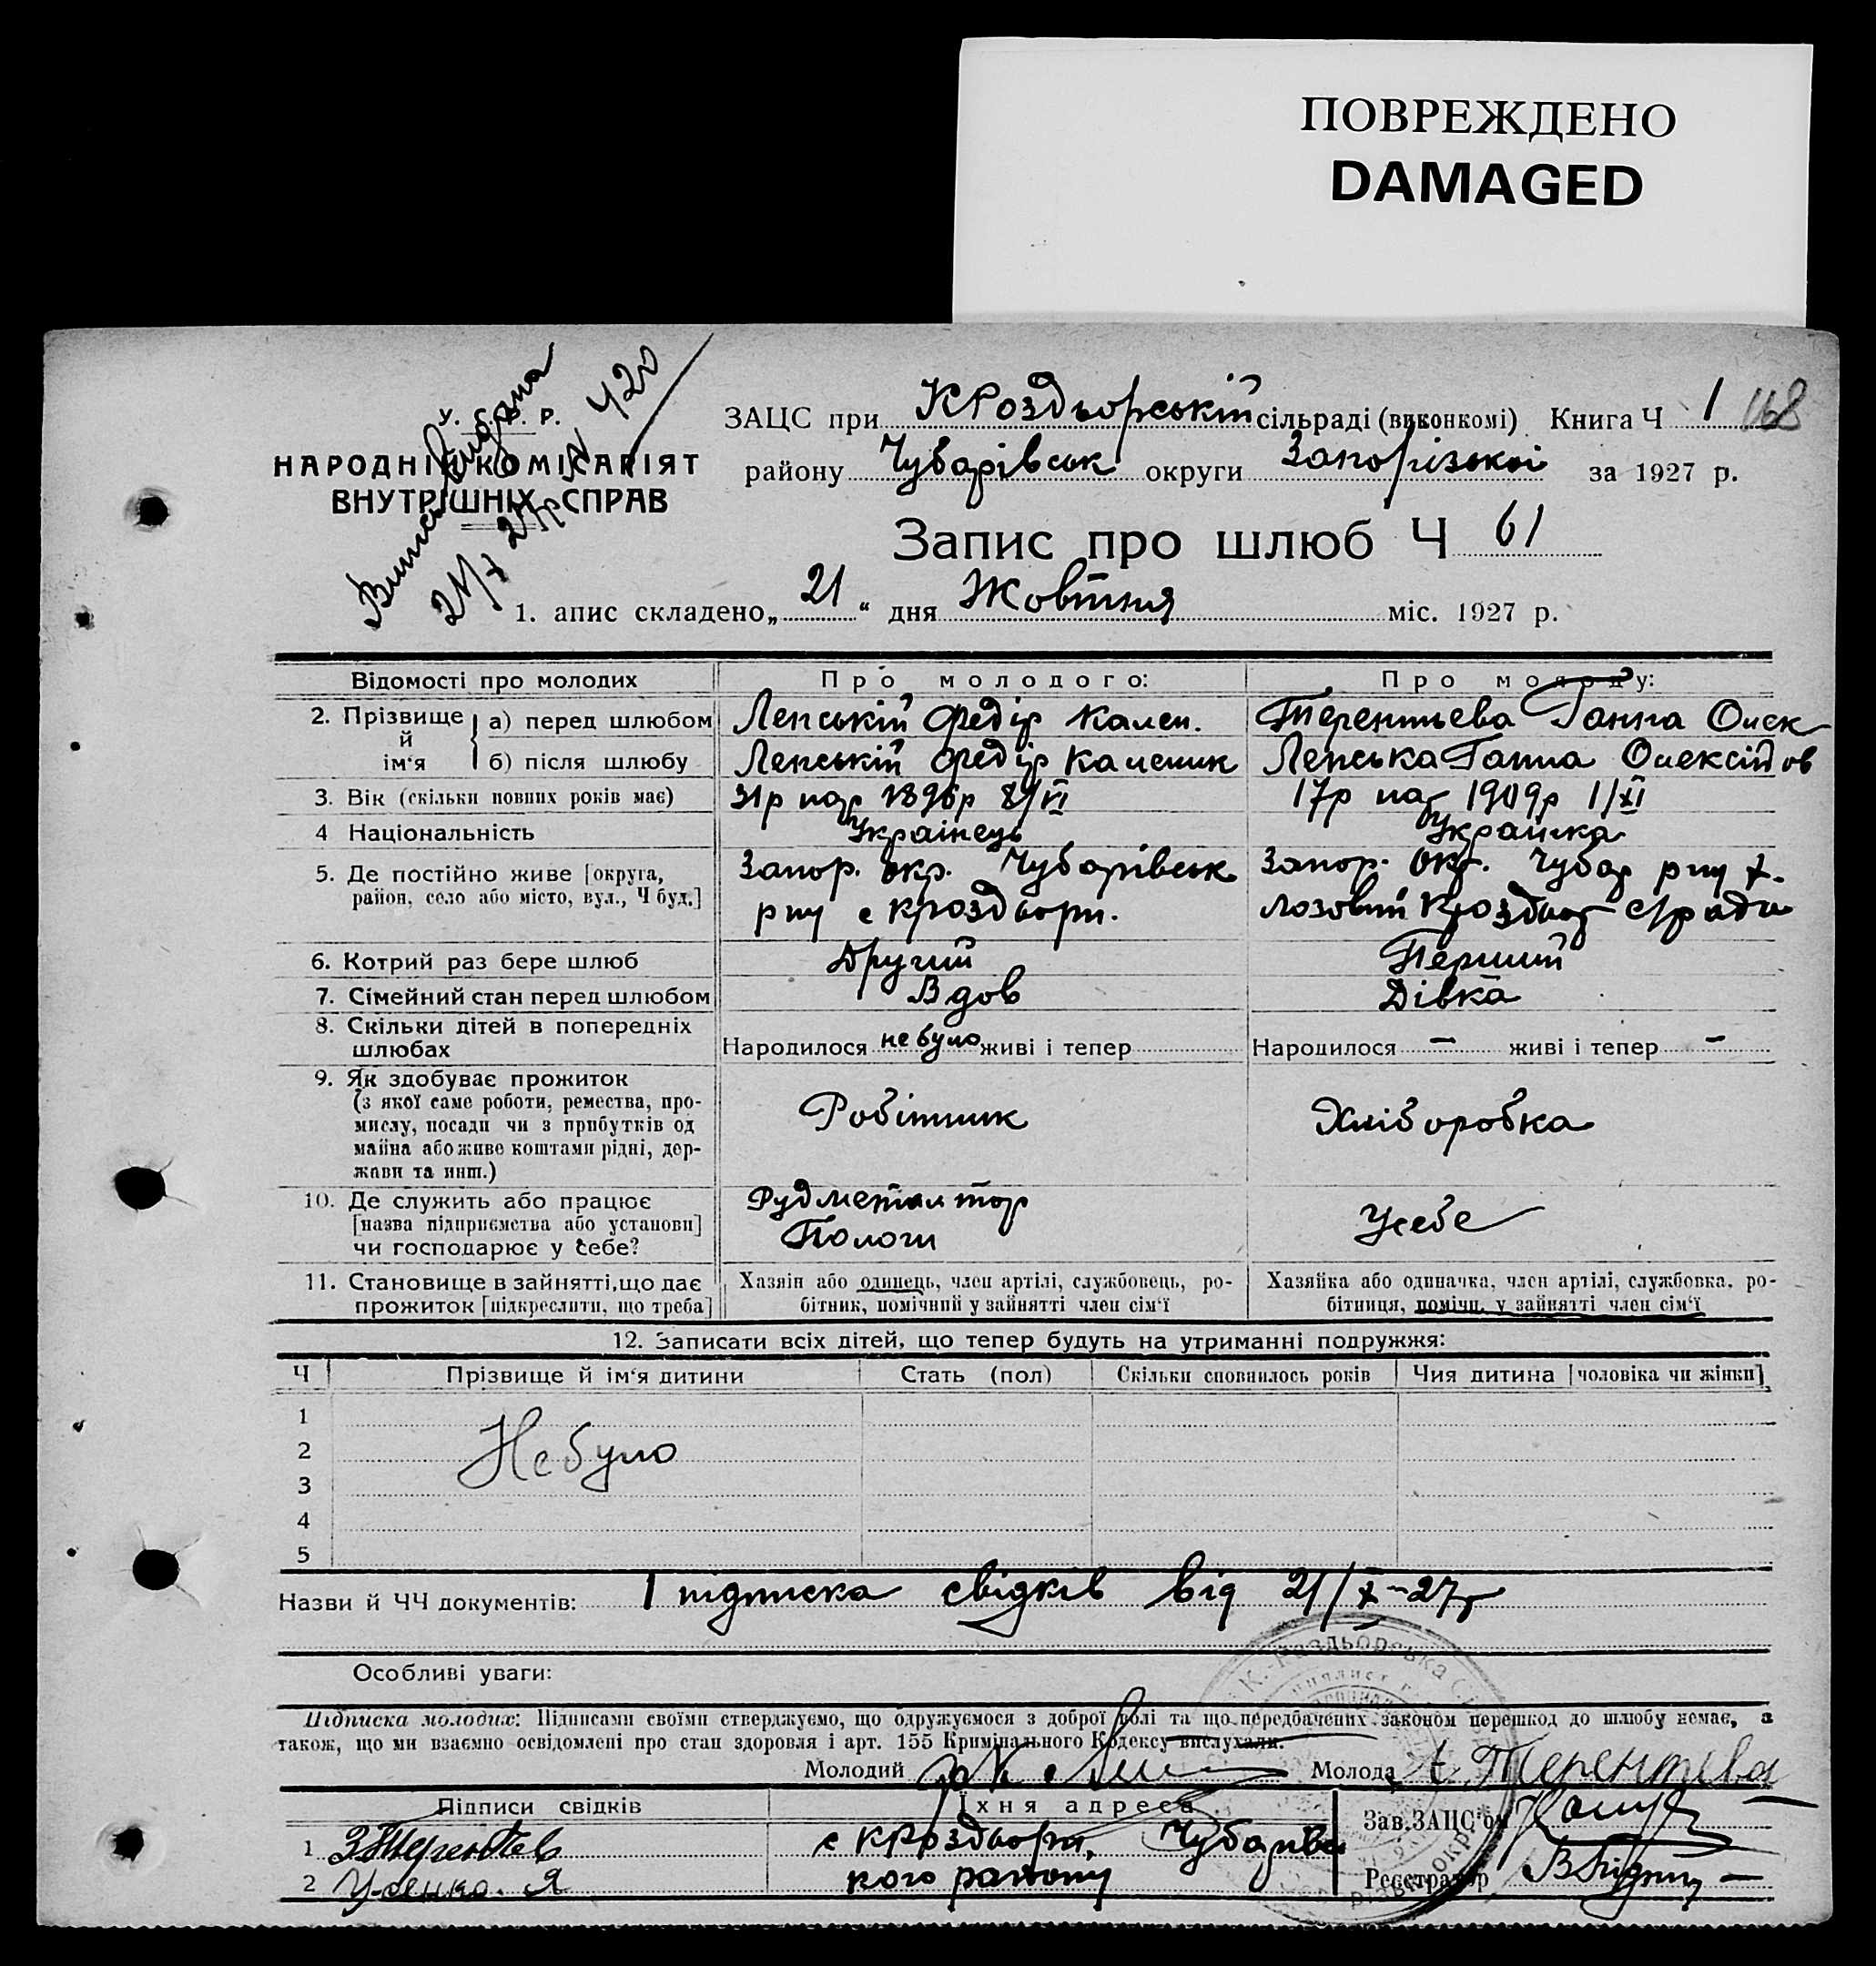 ПОВРЕЖДЕНО
DAMAGED
У. С. Р. Р.
НАРОДНІЙ КОМІСАРІЯТ
ВНУТРІШНІХ СПРАВ
Випись видана
N 420
ЗАЦС при КРоздьорській сільраді (виконкомі) Книга Ч 1 168
району Чубарівськ округи Запорізької за 1927 р.
Запис про шлюб Ч 61
1. апис складено „ 21 “ дня Жовтня міс. 1927 р.
Відомості про молодих Про молодого: Про молоду:
2. Прізвище й ім‘я а) перед шлюбом Ленській Федір Калең. Терентьева Ганна Олек
б) після шлюбу Ленській Федір Каленик Ленська Ганна Олексійов
3. Вік (скільки повних років має) 31р нар 1896р 8/VI 17р нар 1909р 1/XI
4 Національність Українець Українка
5. Де постійно живе [округа, Запор. окр. Чубарівськ Запор. Окр. Чубар рну х.
район, село або місто, вул., Ч буд.] рну с Кроздьори. Лозовий Кроздьор с/ради
6. Котрий раз бере шлюб Другий Перший
7. Сімейний стан перед шлюбом Вдов Дівка
8. Скільки дітей в попередніх
шлюбах Народилося не було живі і тепер Народилося — живі і тепер —
9. Як здобуває прожиток
(з якої саме роботи, ремества, про-
мислу, посади чи з прибутків од Робітник Хліборобка
майна або живе коштами рідні, дер-
жави та инш.)
10. Де служить або працює Рудметалтор
[назва підприємства або установи] Пологи Усебе
чи господарює у себе?
11. Становище в зайнятті, що дає Хазяїн або одинець, член артілі, службовець, ро- Хазяйка або одиначка, член артілі, службовка, ро-
прожиток [підкреслити, що треба] бітник, помічний у зайнятті член сім‘ї бітниця, помічн. у зайнятті член сім‘ї
12. Записати всіх дітей, що тепер будуть на утриманні подружжя:
Ч Прізвище й ім‘я дитини Стать (пол) Скільки сповнилось років Чия дитина [чоловіка чи жінки]
1
2 Не було
3
4
5
Назви й ЧЧ документів: 1 підписка свідків від 21/X-27р
Особливі уваги:
Підписка молодих: Підписами своїми стверджуємо, що одружуємося з доброї волі та що передбачених законом перешкод до шлюбу немає, а
також, що ми взаємно освідомлені про стан здоровля і арт. 155 Кримінального Кодексу вислухали.
Молодий Молода Терентева
Підписи свідків Їхня адреса Зав. ЗАЦС‘ом
1 ЗТерентьев с Кроздьори, Чубарівсь
2 Усенко. Я кого району Реєстратор